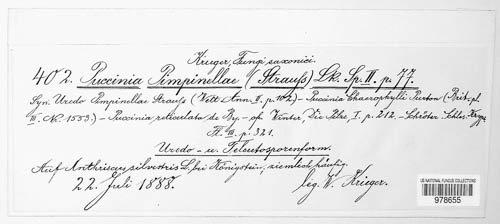 Krieger, Fungi saxonici.
402. Puccinia Pimpinellae (Strauß) Lk. Sp. II. p. 77.
Syn. Uredo Pimpinellae Strauß (Wett. Ann. II. p. 102) – Puccinia Chaerophylli Purton (Brit. pl. III. No. 1553.) – Puccinia reticulata de By. – cfr. Winter, Die Pilze, I. p. 212. – Schröter: Schles. Krypt.
Fl. III. p. 321.
Uredo- u. Teleutosporenform.
Auf Anthriscus silvestris L. bei Königstein, ziemlich häufig.
22. Juli 1888.
leg. W. Krieger.
US NATIONAL FUNGUS COLLECTIONS
978655